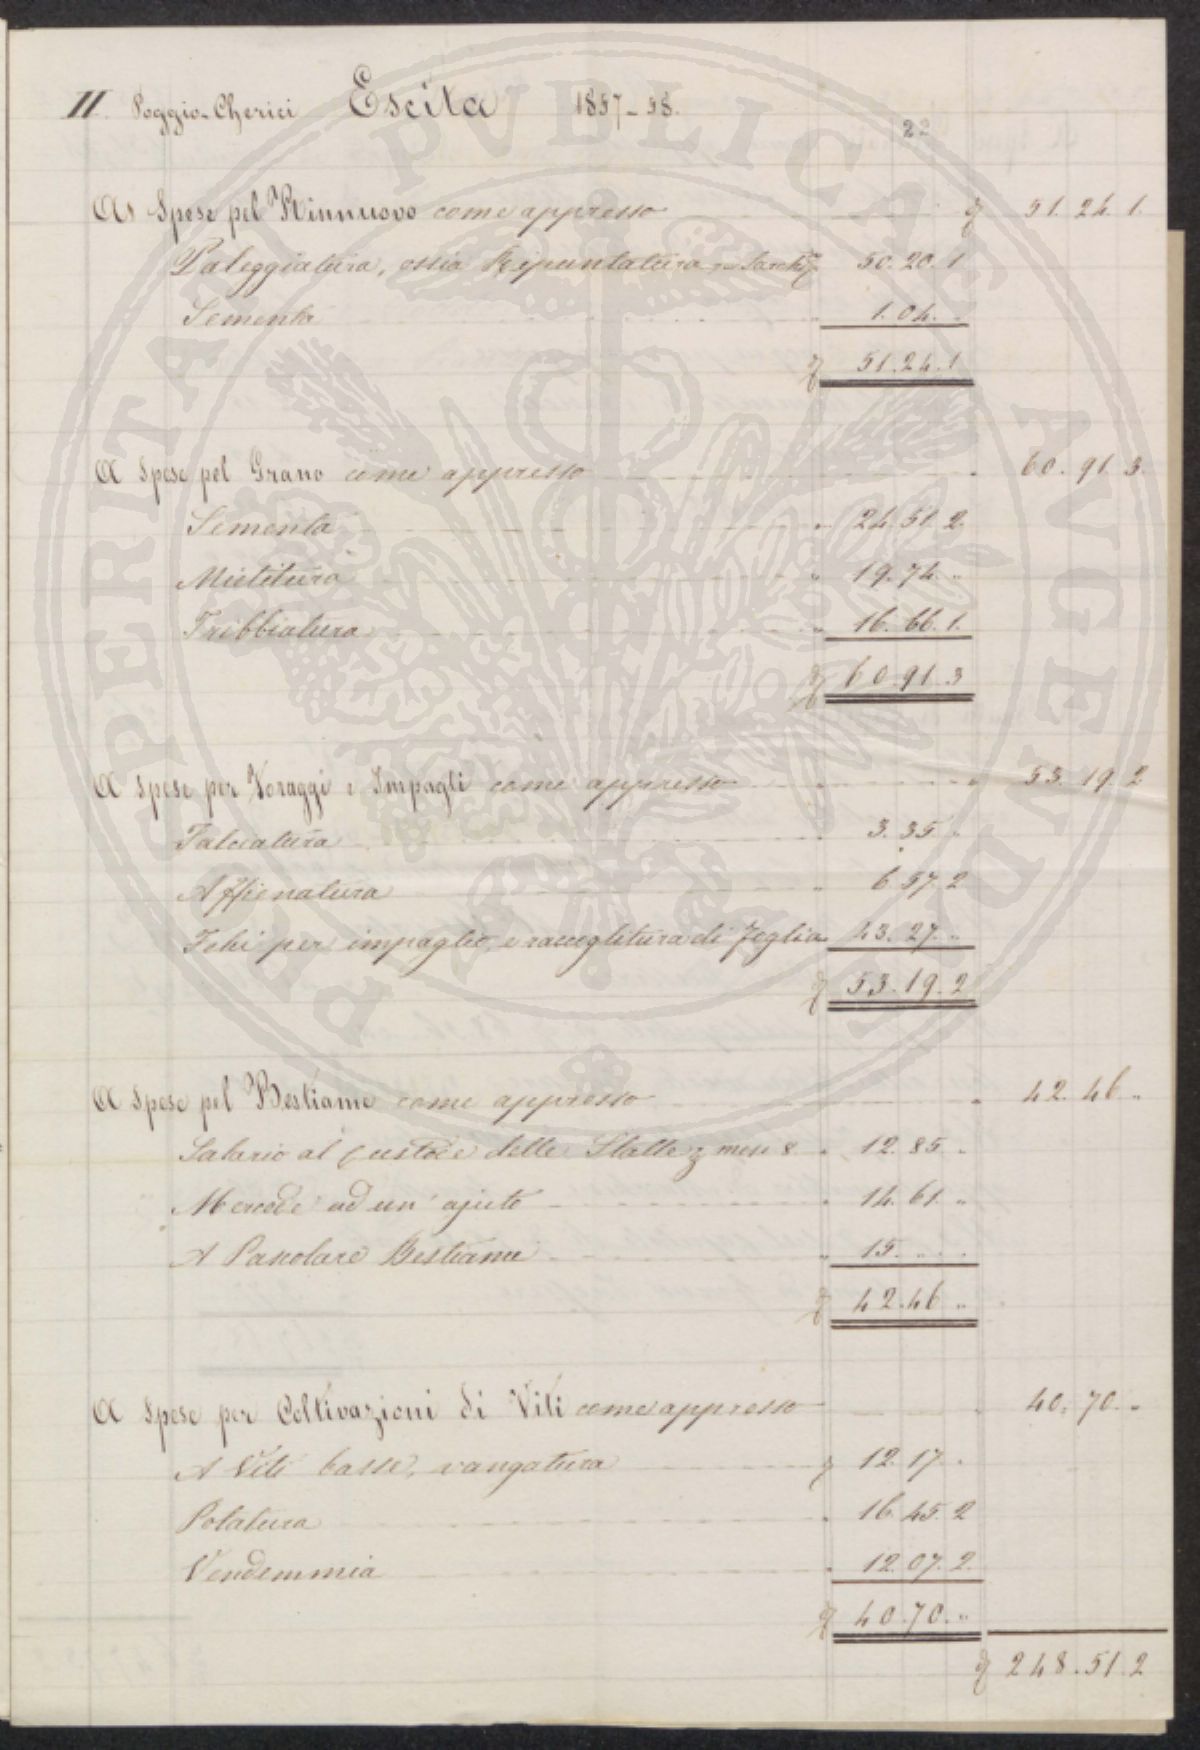 II. Poggio-Cherici Escita 1857-58.
22
A Spese pel Rinnuovo come appresso 51.24.1.
Paleggiatura, ossia Ripuntatura 50.20.1
Sementa " 1.04. "
51.24.1
A Spese pel Grano come appresso " 60.91.3.
Sementa " 24.51.2.
Mietitura " 19.74. "
Tribbiatura " 16.66.1.
60.91.3
A Spese per Foraggi e Impagli come appresso " 53.19.2
Falciatura " 3.35. "
Affienatura " 6.57.2
per impaglio, e raccoglitura di Foglia " 43.27. "
53.19.2
A Spese pel Bestiame come appresso " 42.46. "
Salario al Custode delle Stalle mesi 8 " 12.85. "
Mercede ad un' ajuto " 14.61. "
A Pascolare Bestiame " 15. " . "
42.46. "
A Spese per Coltivazioni di Viti come appresso 40.70. "
A Viti basse, vangatura 12.17. "
Potatura " 16.45.2
Vendemmia " 12.07.2.
40.70. "
248.51.2
PERITAT PVBLICAE AVGENDAE PROSPERITATI